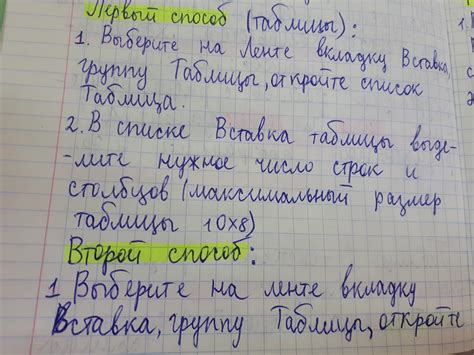 Первый способ (таблицы):
1. Выберите на Ленте вкладку Вставка,
группу Таблицы, откройте список
Таблица.
2. В списке Вставка таблицы выде-
-лите нужное число строк и
столбцов (максимальный размер
таблицы 10х8)
Второй способ:
1 Выберите на ленте вкладку
Вставка, группу Таблицы, откройте